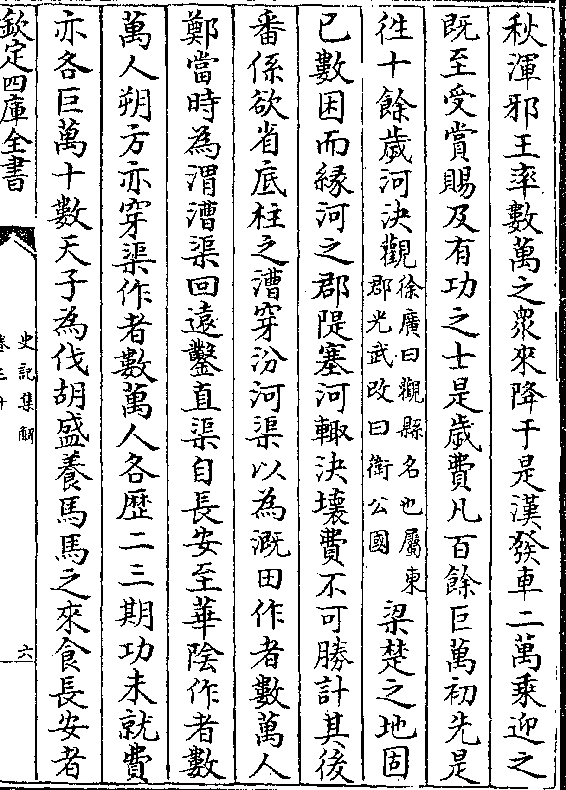 秋渾邪王率數萬之衆來降于是漢發車二萬乘迎之
既至受賞賜及有功之士是歲費凡百餘巨萬初先是
徃十餘歲河決觀徐廣曰觀縣名也屬東郡光武改曰衞公國梁楚之地固
已數困而緣河之郡隄塞河輙決壞費不可勝計其後
番係欲省底柱之漕穿汾河渠以為溉田作者數萬人
鄭當時為渭漕渠回遠鑿直渠自長安至華陰作者數
萬人朔方亦穿渠作者數萬人各歴二三期功未就費
亦各巨萬十數天子為伐胡盛養馬馬之來食長安者
欽定四庫全書
史記集解
六